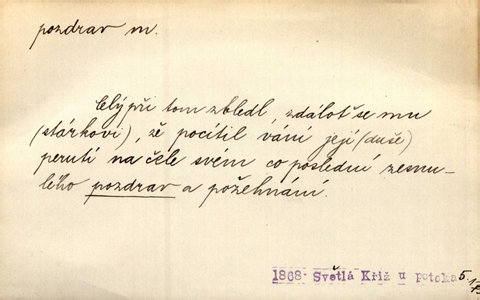 pozdrav m.
Celý při tom zbledl, zdálotě se mu
(stárkovi), že pocítil vání její (duše)
perutí na čele svém co poslední zesnu-
lého pozdrav a požehnání.
1868 Světlá Kříž u potoka 5.